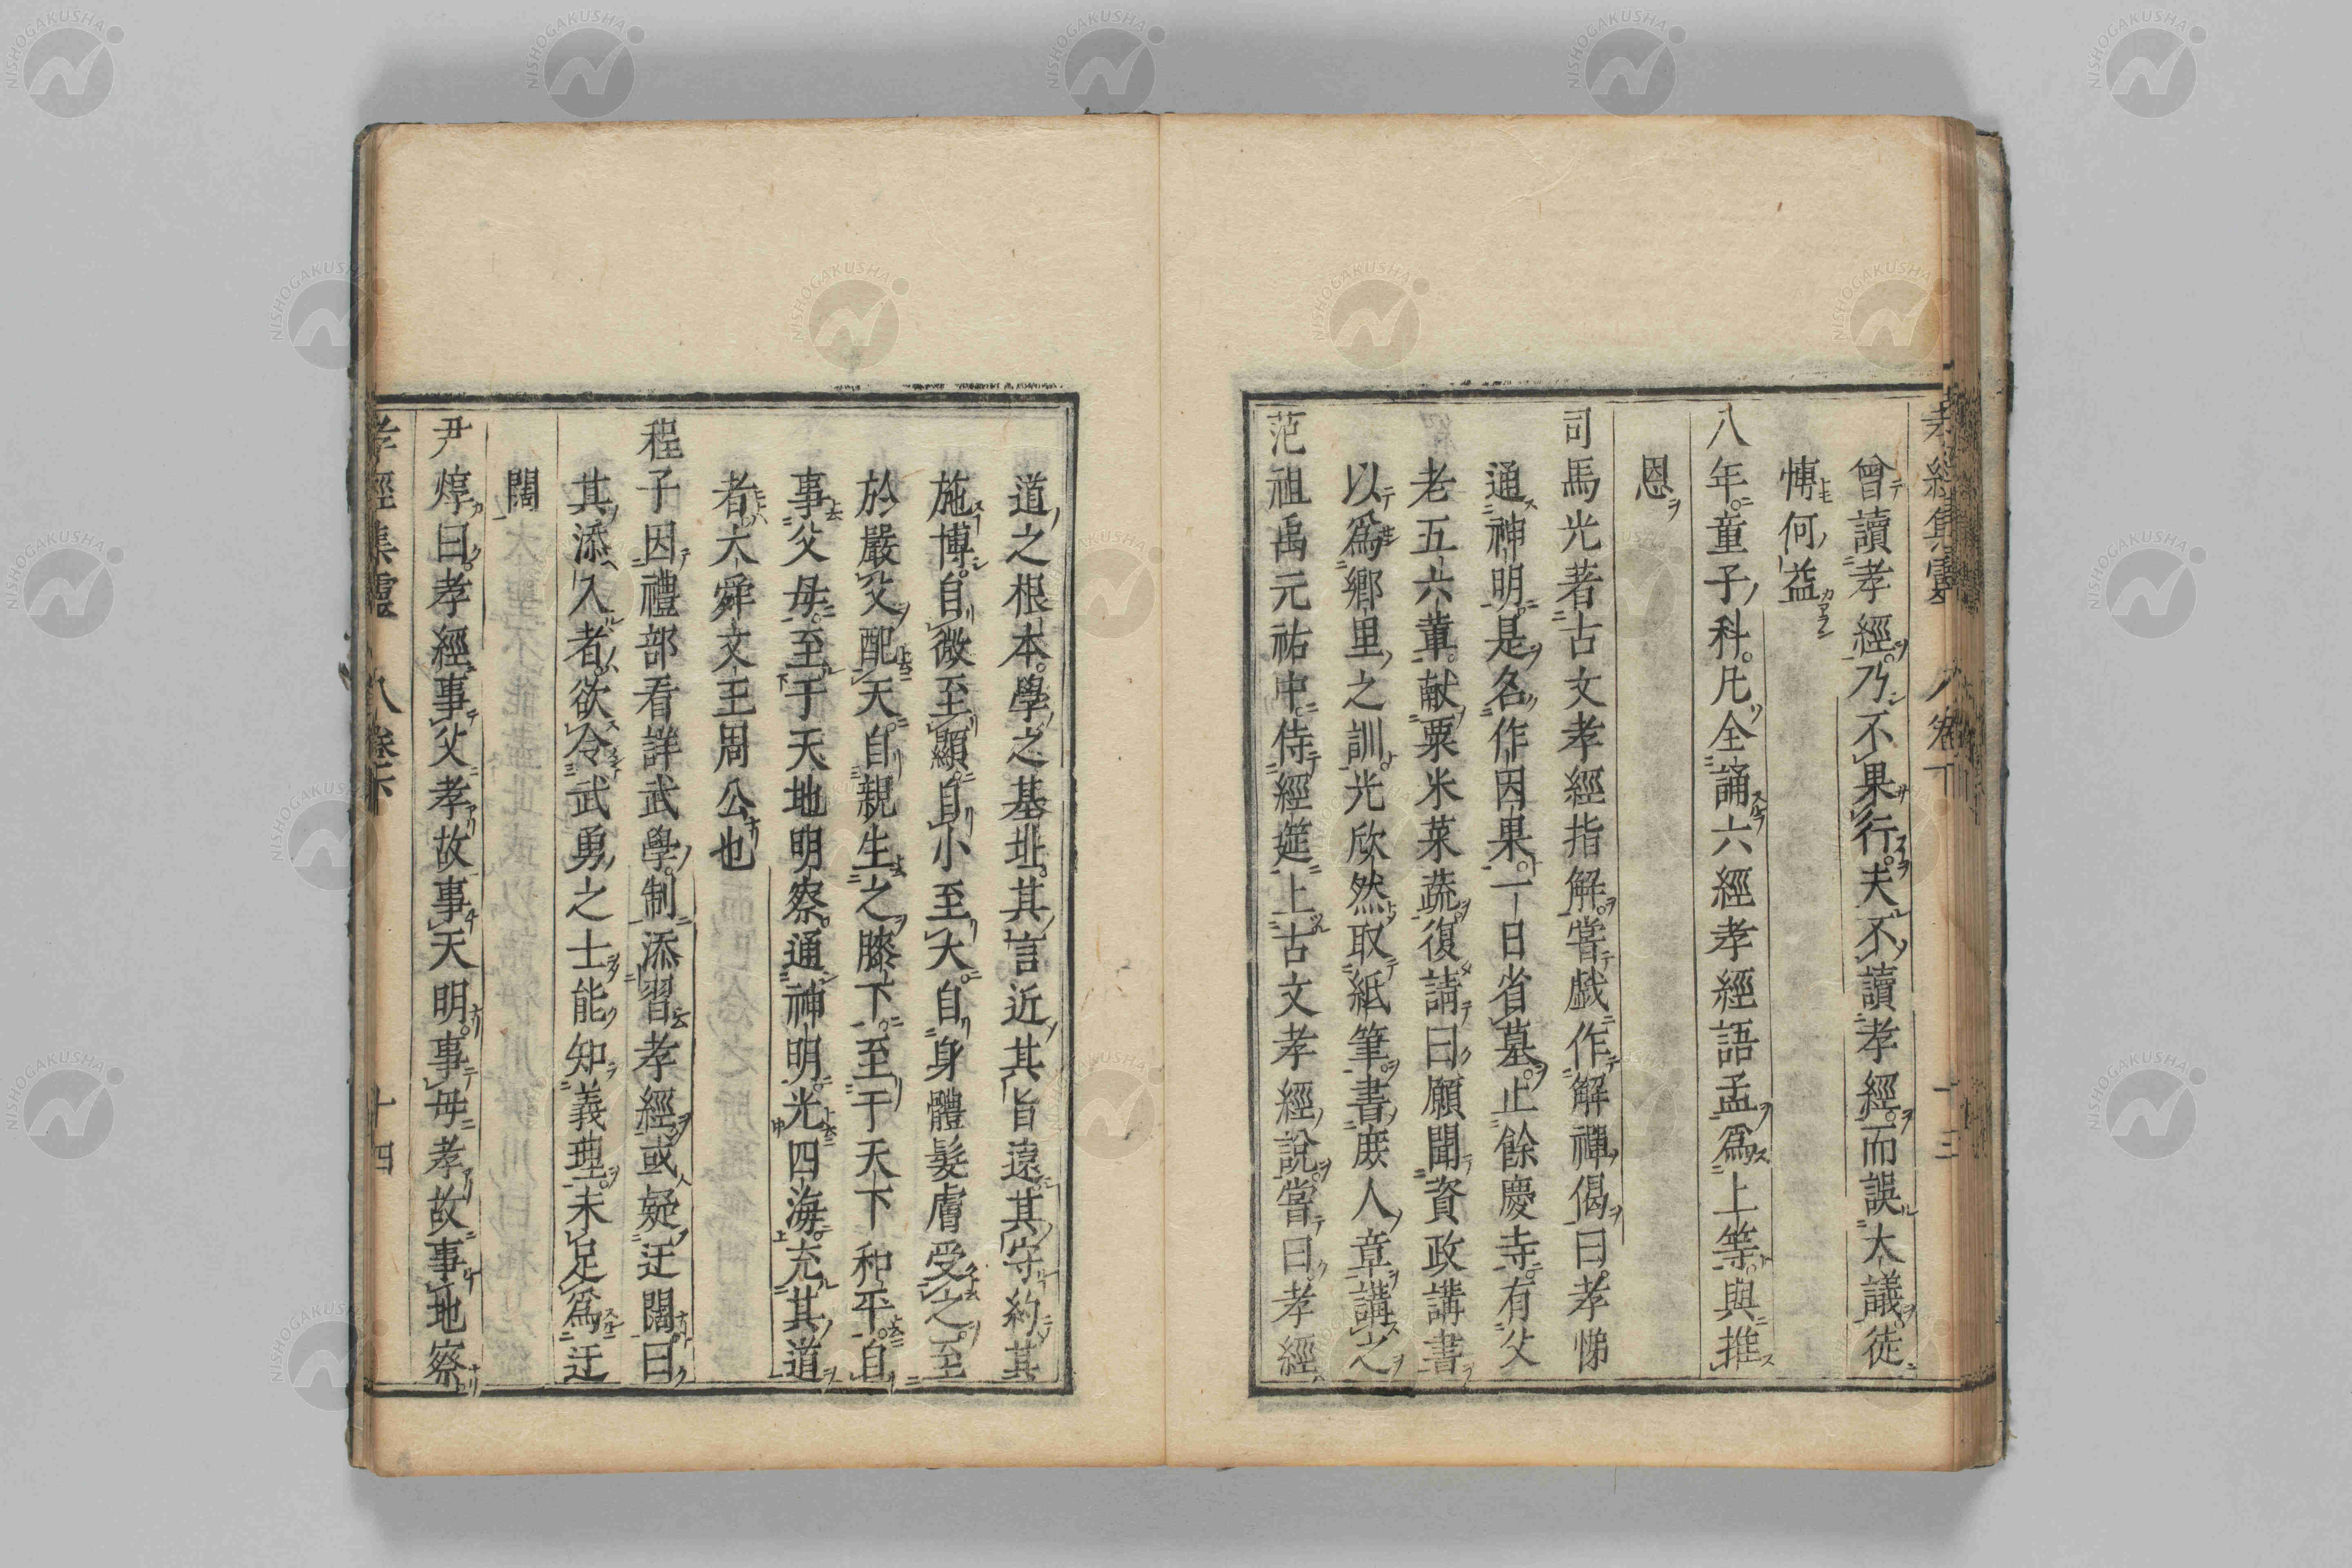 曾讀孝經乃不果行夫不讀孝經而誤大議徒
慱何益
八年童子科凡全誦六經孝經語孟爲上等與推
恩
司馬光著古文孝經指解嘗戯作解禪偈曰孝悌
通神明是名作因果一日省墓止餘慶寺有父
老五六軰献粟米菜蔬復請曰願聞資政講書
以爲鄉里之訓光欣然取紙筆書庻人章講之
范祖禹元祐中侍經筵上古文孝經說嘗曰孝經
道之根本學之基址其言近其旨遠其守約其
施博自微至顯自小至大自身體髮膚受之至
於嚴父配天自親生之膝下至于天下和平自
事父母至于天地明察通神明光四海充其道
者大舜文王周公也
程子因禮部看詳武學制添習孝經或疑迂闊曰
其添入者欲令武勇之士能知義理未足爲迂
闊
尹焞曰孝經事父孝故事天明事母孝故事地察
孝經集靈 八卷下 十四
NISHOGAKUSHA